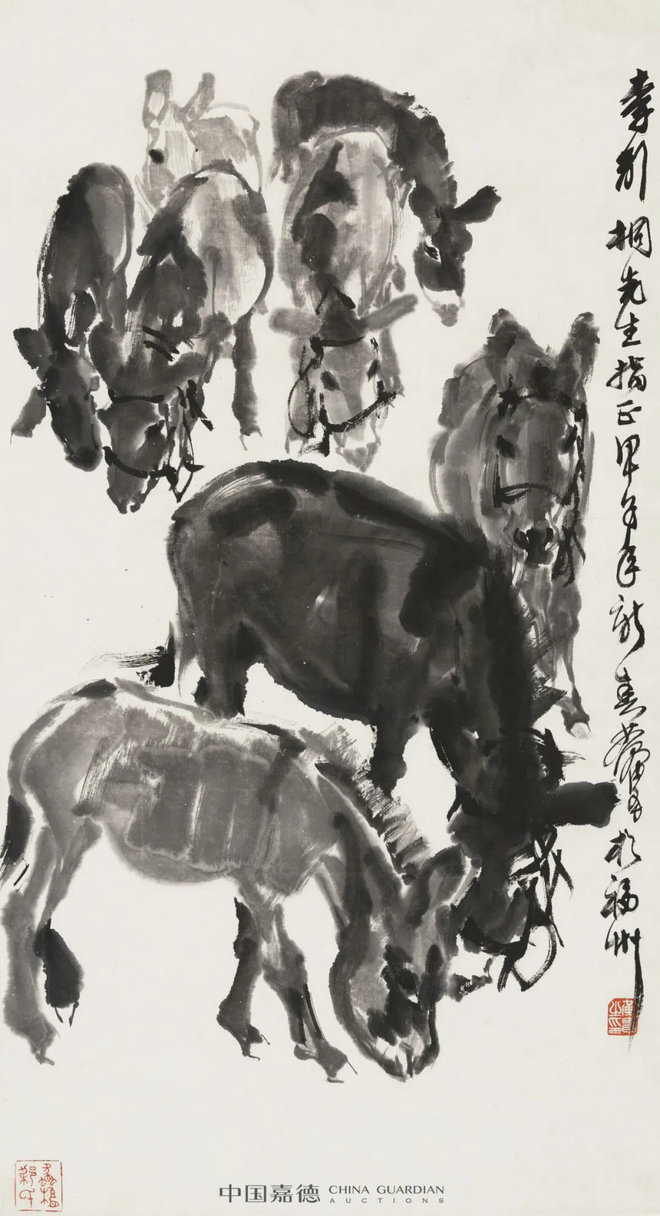 桐先生指正甲子年新春黄胄於福州
中国嘉德 CHINA GUARDIAN
AUCTIONS